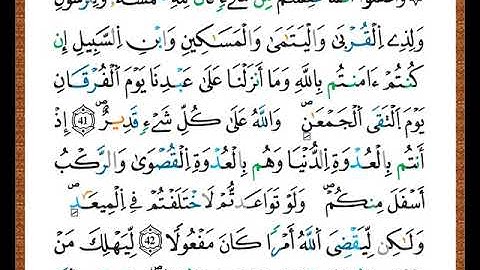 وَاعْلَمُوا أَنَّمَا غَنِمْتُم مِّن شَيْءٍ فَأَنَّ لِلَّهِ خُمُسَهُ وَلِلرَّسُولِ
وَلِذِے اِلْقُرْبَىٰ وَالْيَتَٰمَىٰ وَالْمَسَٰكِينِ وَابْنِ اِلسَّبِيلِ إِن
كُنتُمْ ءَامَنتُم بِاللَّهِ وَمَا أَنزَلْنَا عَلَىٰ عَبْدِنَا يَوْمَ اَلْفُرْقَانِ
يَوْمَ اَلْتَقَى اَلْجَمْعَٰنِ وَاللَّهُ عَلَىٰ كُلِّ شَےْءٍ قَدِيرٌ 41 إِذْ
أَنتُم بِالْعُدْوَةِ اِلدُّنْيَا وَهُم بِالْعُدْوَةِ اِلْقُصْوَىٰ وَالرَّكْبُ
أَسْفَلَ مِنكُمْ وَلَوْ تَوَاعَدتُّمْ لَاخْتَلَفْتُمْ فِے اِلْمِيعَٰدِ
وَلَٰكِن لِّيَقْضِىَ اَللَّهُ أَمْرًا كَانَ مَفْعُولًا 42 لِّيَهْلِكَ مَنْ